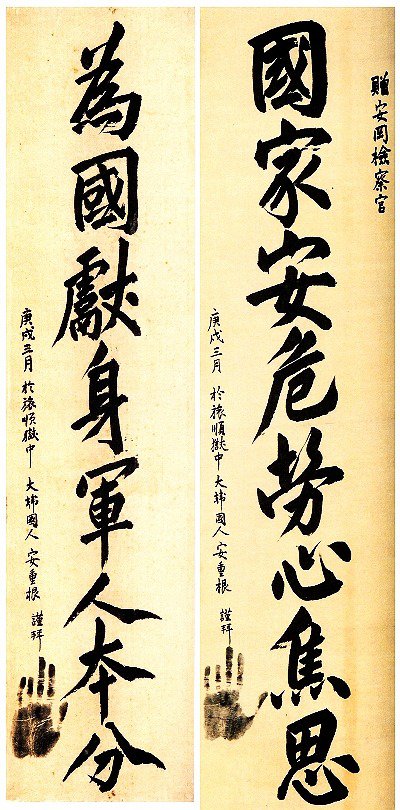 贈安岡檢察官
國家安危勞心焦思
庚戌三月 於旅順獄中 大韓國人 安重根 謹拜
為國獻身軍人本分
庚戌三月 於旅順獄中 大韓國人 安重根 謹拜